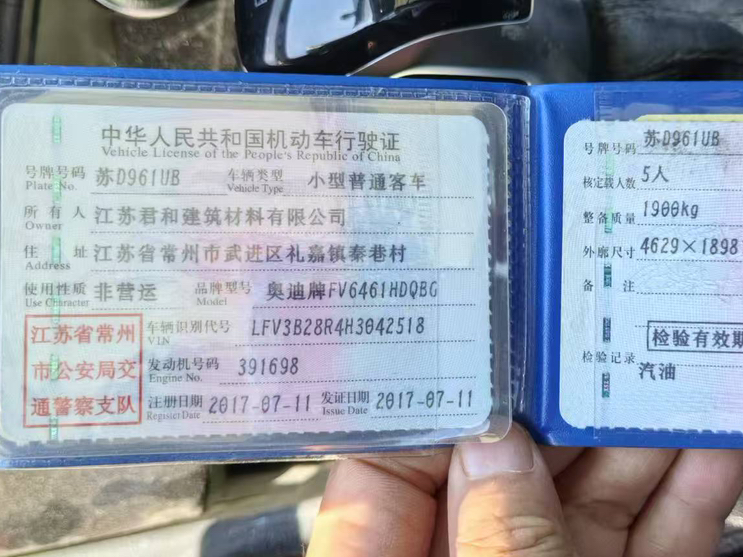 中华人民共和国机动车行驶证
Vehicle License of the People's Republic of China
号牌号码 苏D961UB 车辆类型 小型普通客车
Plate No. Vehicle Type
所有人 江苏君和建筑材料有限公司
Owner
住址 江苏省常州市武进区礼嘉镇秦巷村
Address
使用性质 非营运 品牌型号 奥迪牌FV6461HDQBG
Use Character Model
车辆识别代号 LFV3B28R4H3042518
VIN
发动机号码 391698
Engine No.
注册日期 2017-07-11 发证日期 2017-07-11
Register Date Issue Date
江苏省常州
市公安局交
通警察支队
号牌号码 苏D961UB
核定载人数 5人
整备质量 1900kg
外廓尺寸 4629×1898
备注
检验有效期
检验记录
汽油